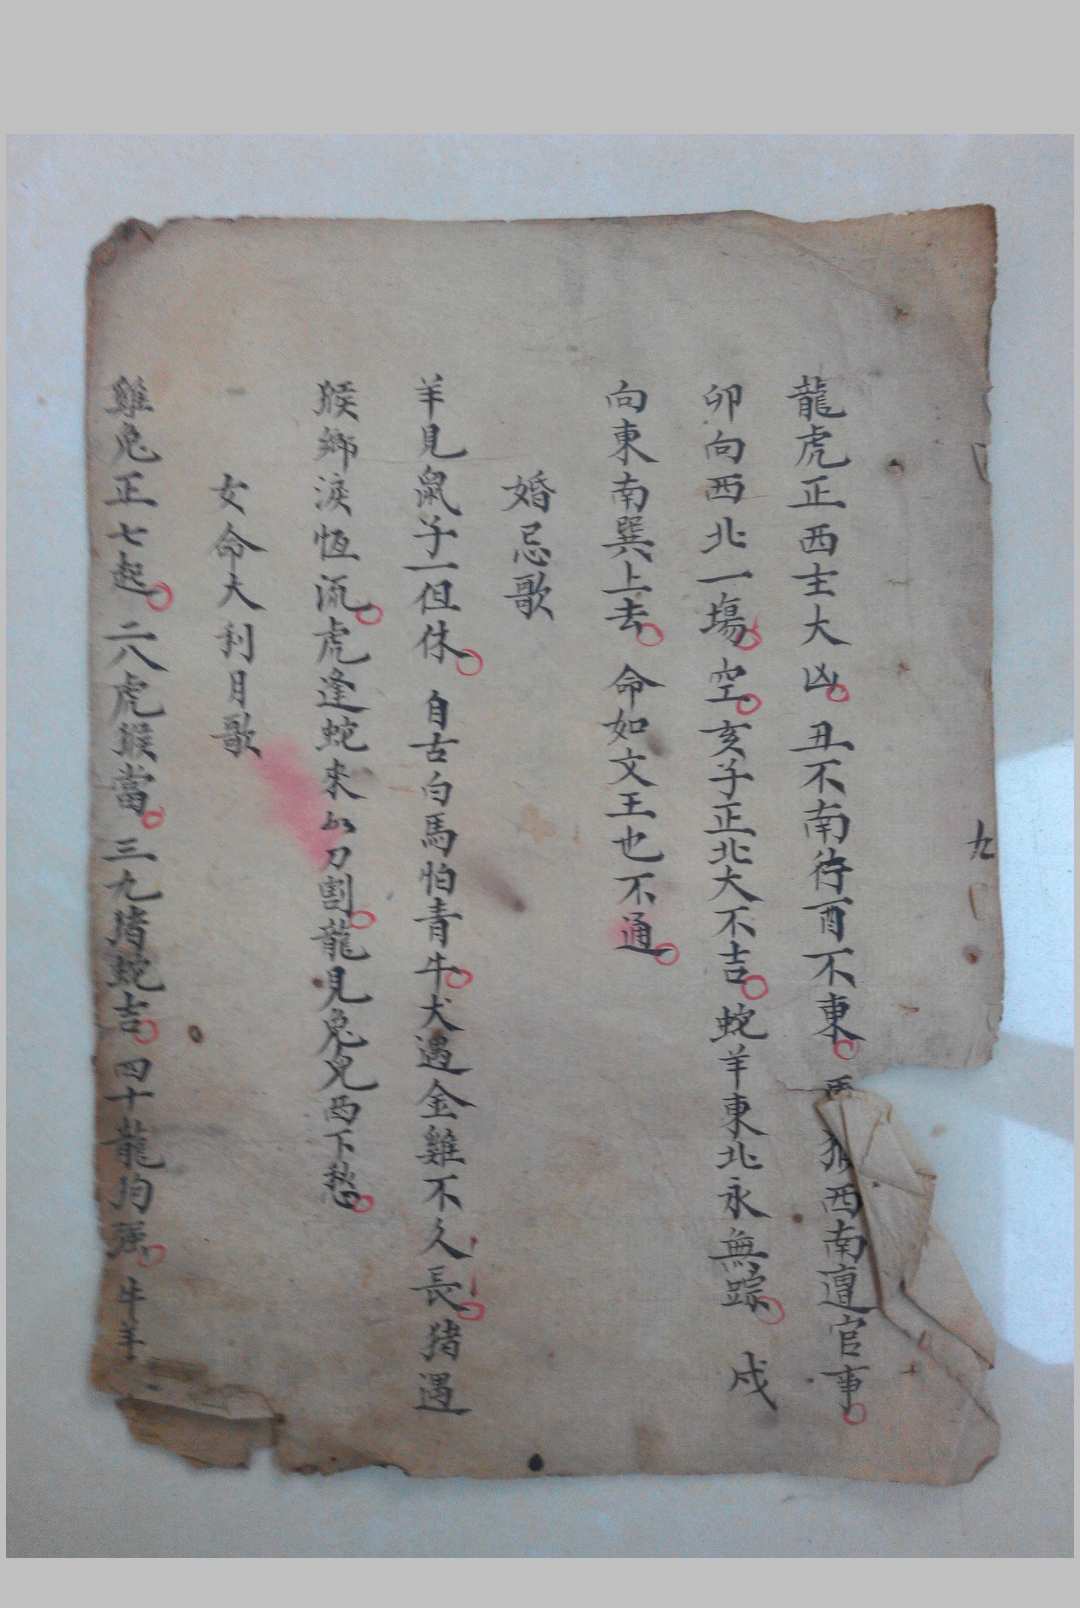 九
龍虎正西主大凶 丑不南待酉不東 西南遭官事
卯向西北一塲空 亥子正北大不吉 蛇羊東北永無踪 戌
向東南巽上去 命如文王也不通
婚忌歌
羊見鼠子一但休 自古白馬怕青牛 犬遇金雞不久長 猪遇
猴鄉淚恆流 虎逢蛇來如刀割 龍見兔兒西下愁
女命大利月歌
雞兔正七起 二八虎猴當 三九猪蛇吉 四十龍均强 牛羊